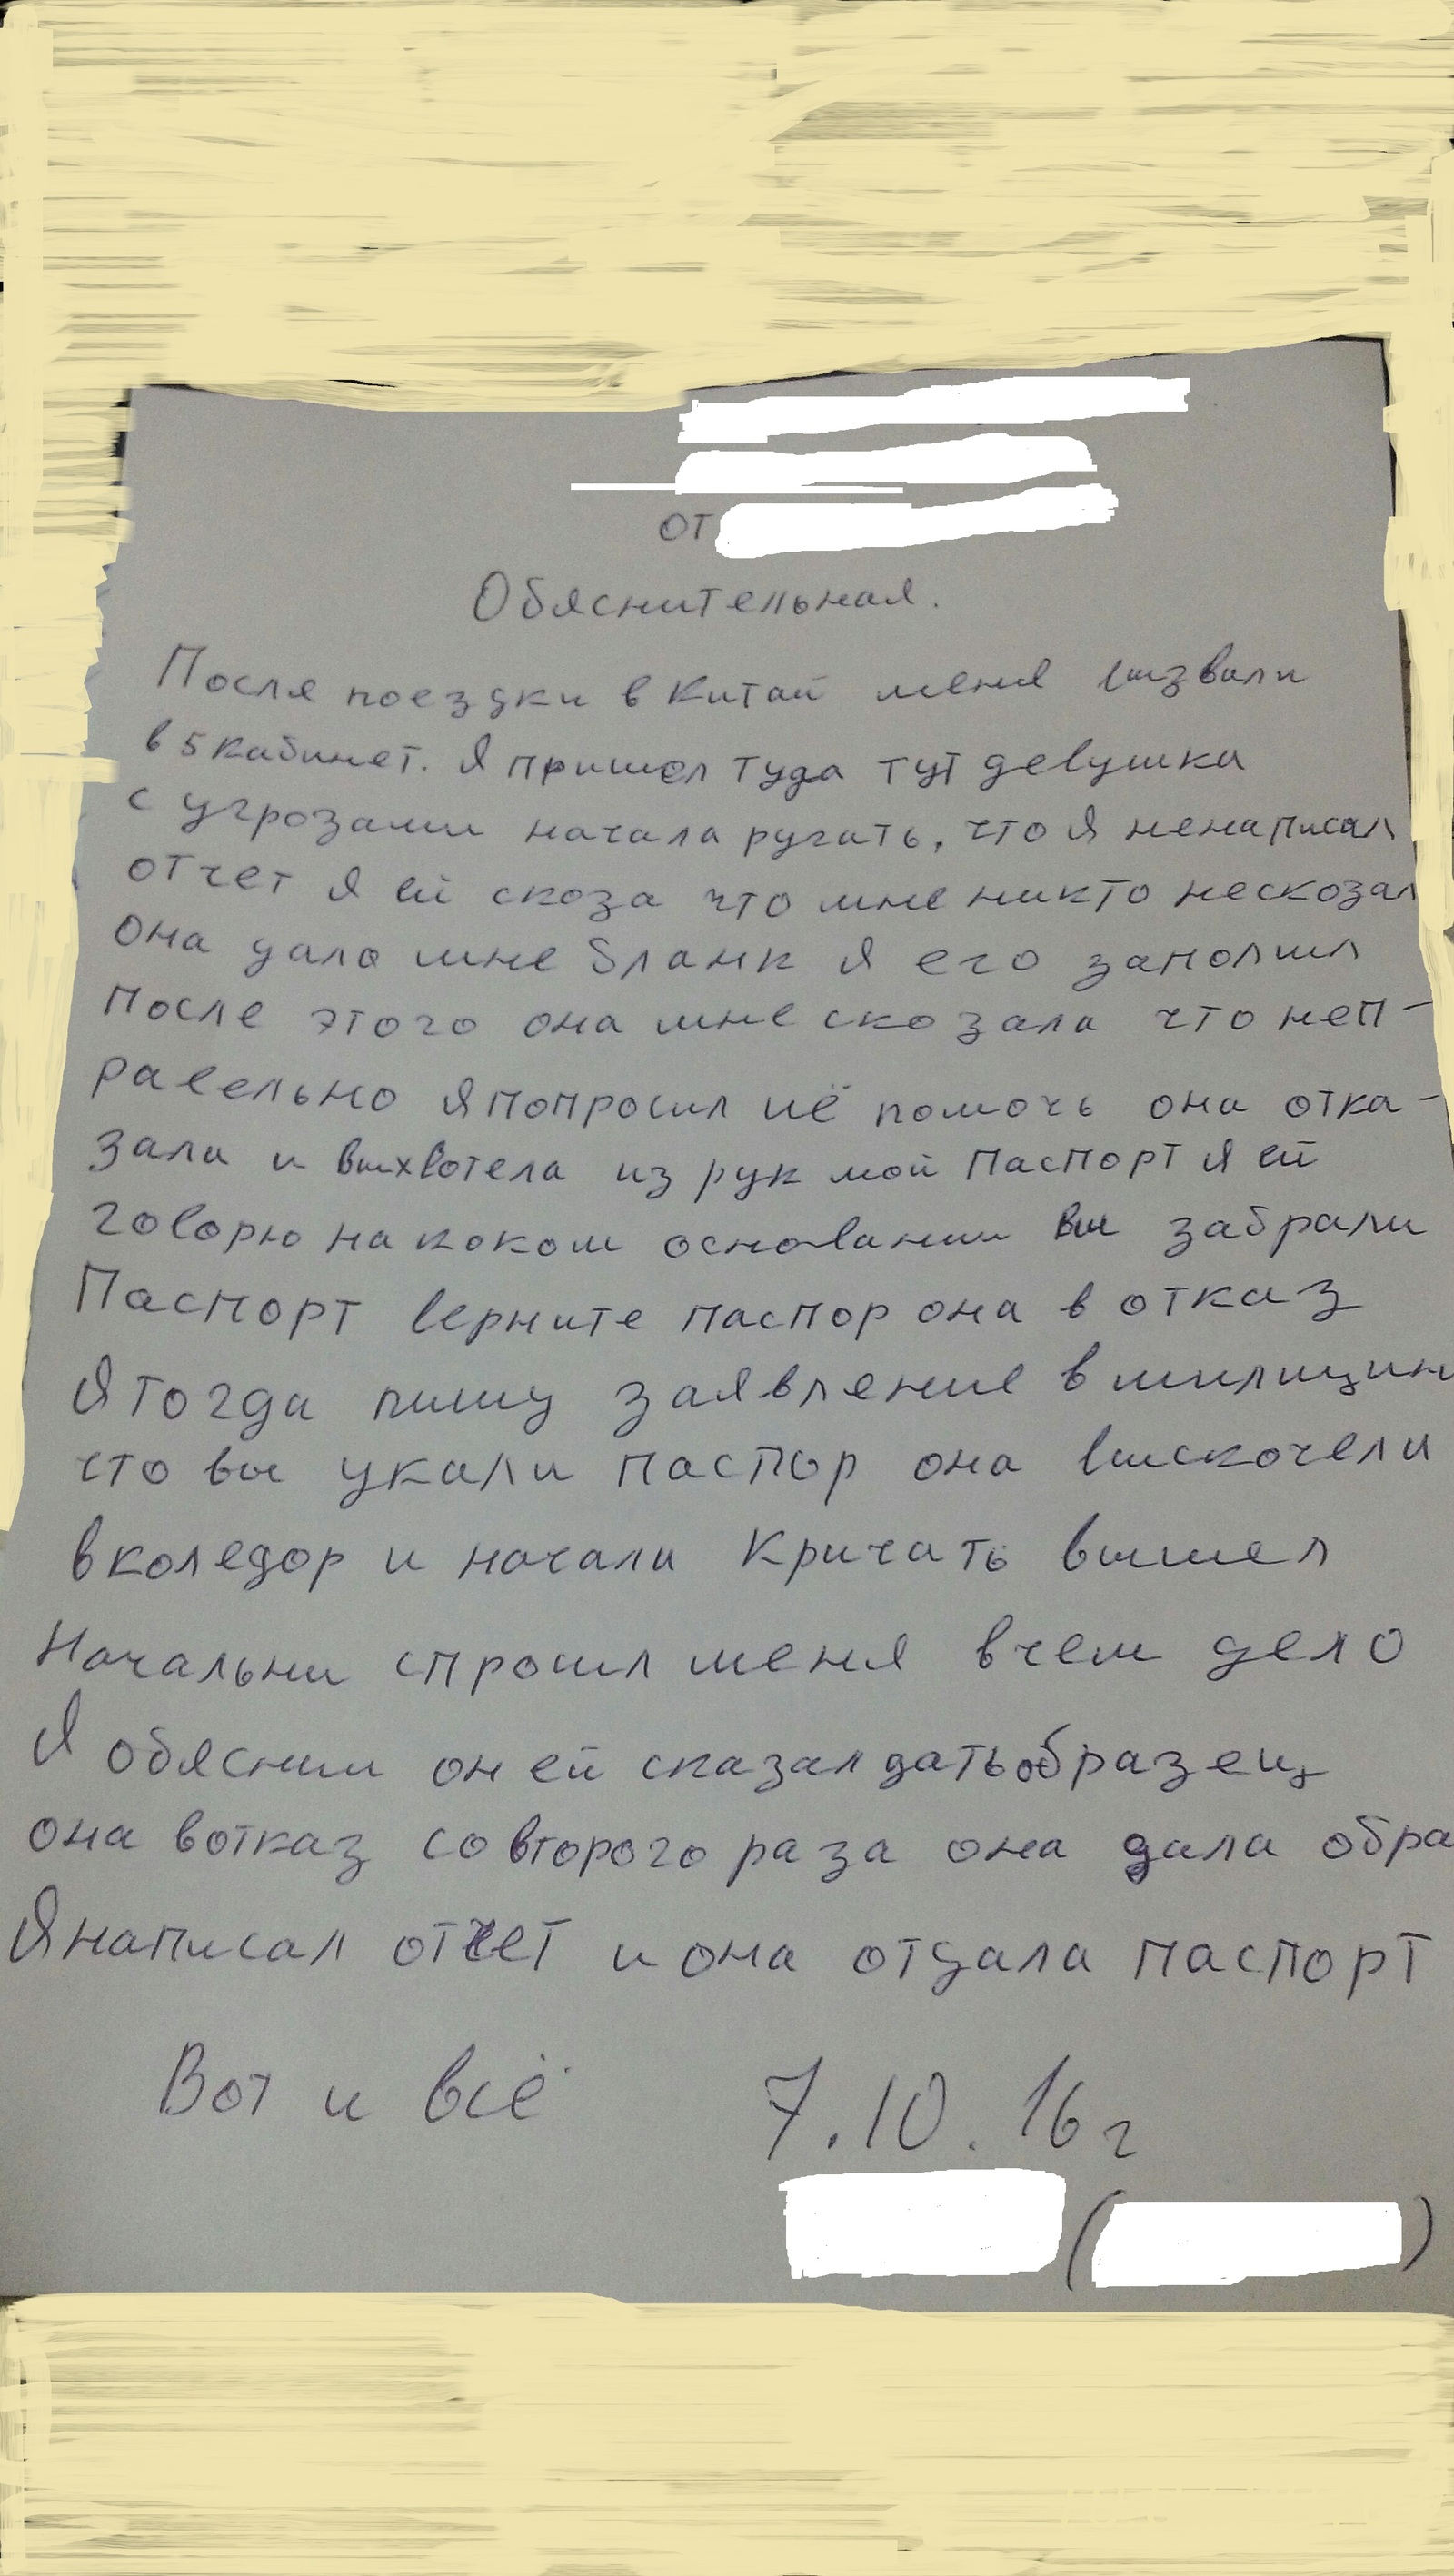 от
Обяснительная.
Посля поездки в Китай меня вызвали
в 5 кабинет. Я пришел туда тут девушка
с угрозами начала ругать, что я ненаписал
отчет я ей скоза что мне никто нескозал
она дала мне бланк я его заполнил
После этого она мне скозала что неп-
равельно я попросил иё помочь она отка-
зала и выхвотела из рук мой паспорт я ей
говорю на коком основании вы забрали
Паспорт верните паспор она в отказ
Я тогда пишу заявление в милицию
что вы укали паспор она выскочела
в коледор и начала Кричать вышел
Начальни спросил меня вчем дело
Я обясним он ей сказал дать образец
она вотказ совторого раза она дала обра
Я написал отчет и она отдала паспорт
Вот и всё 7.10.16г
( )